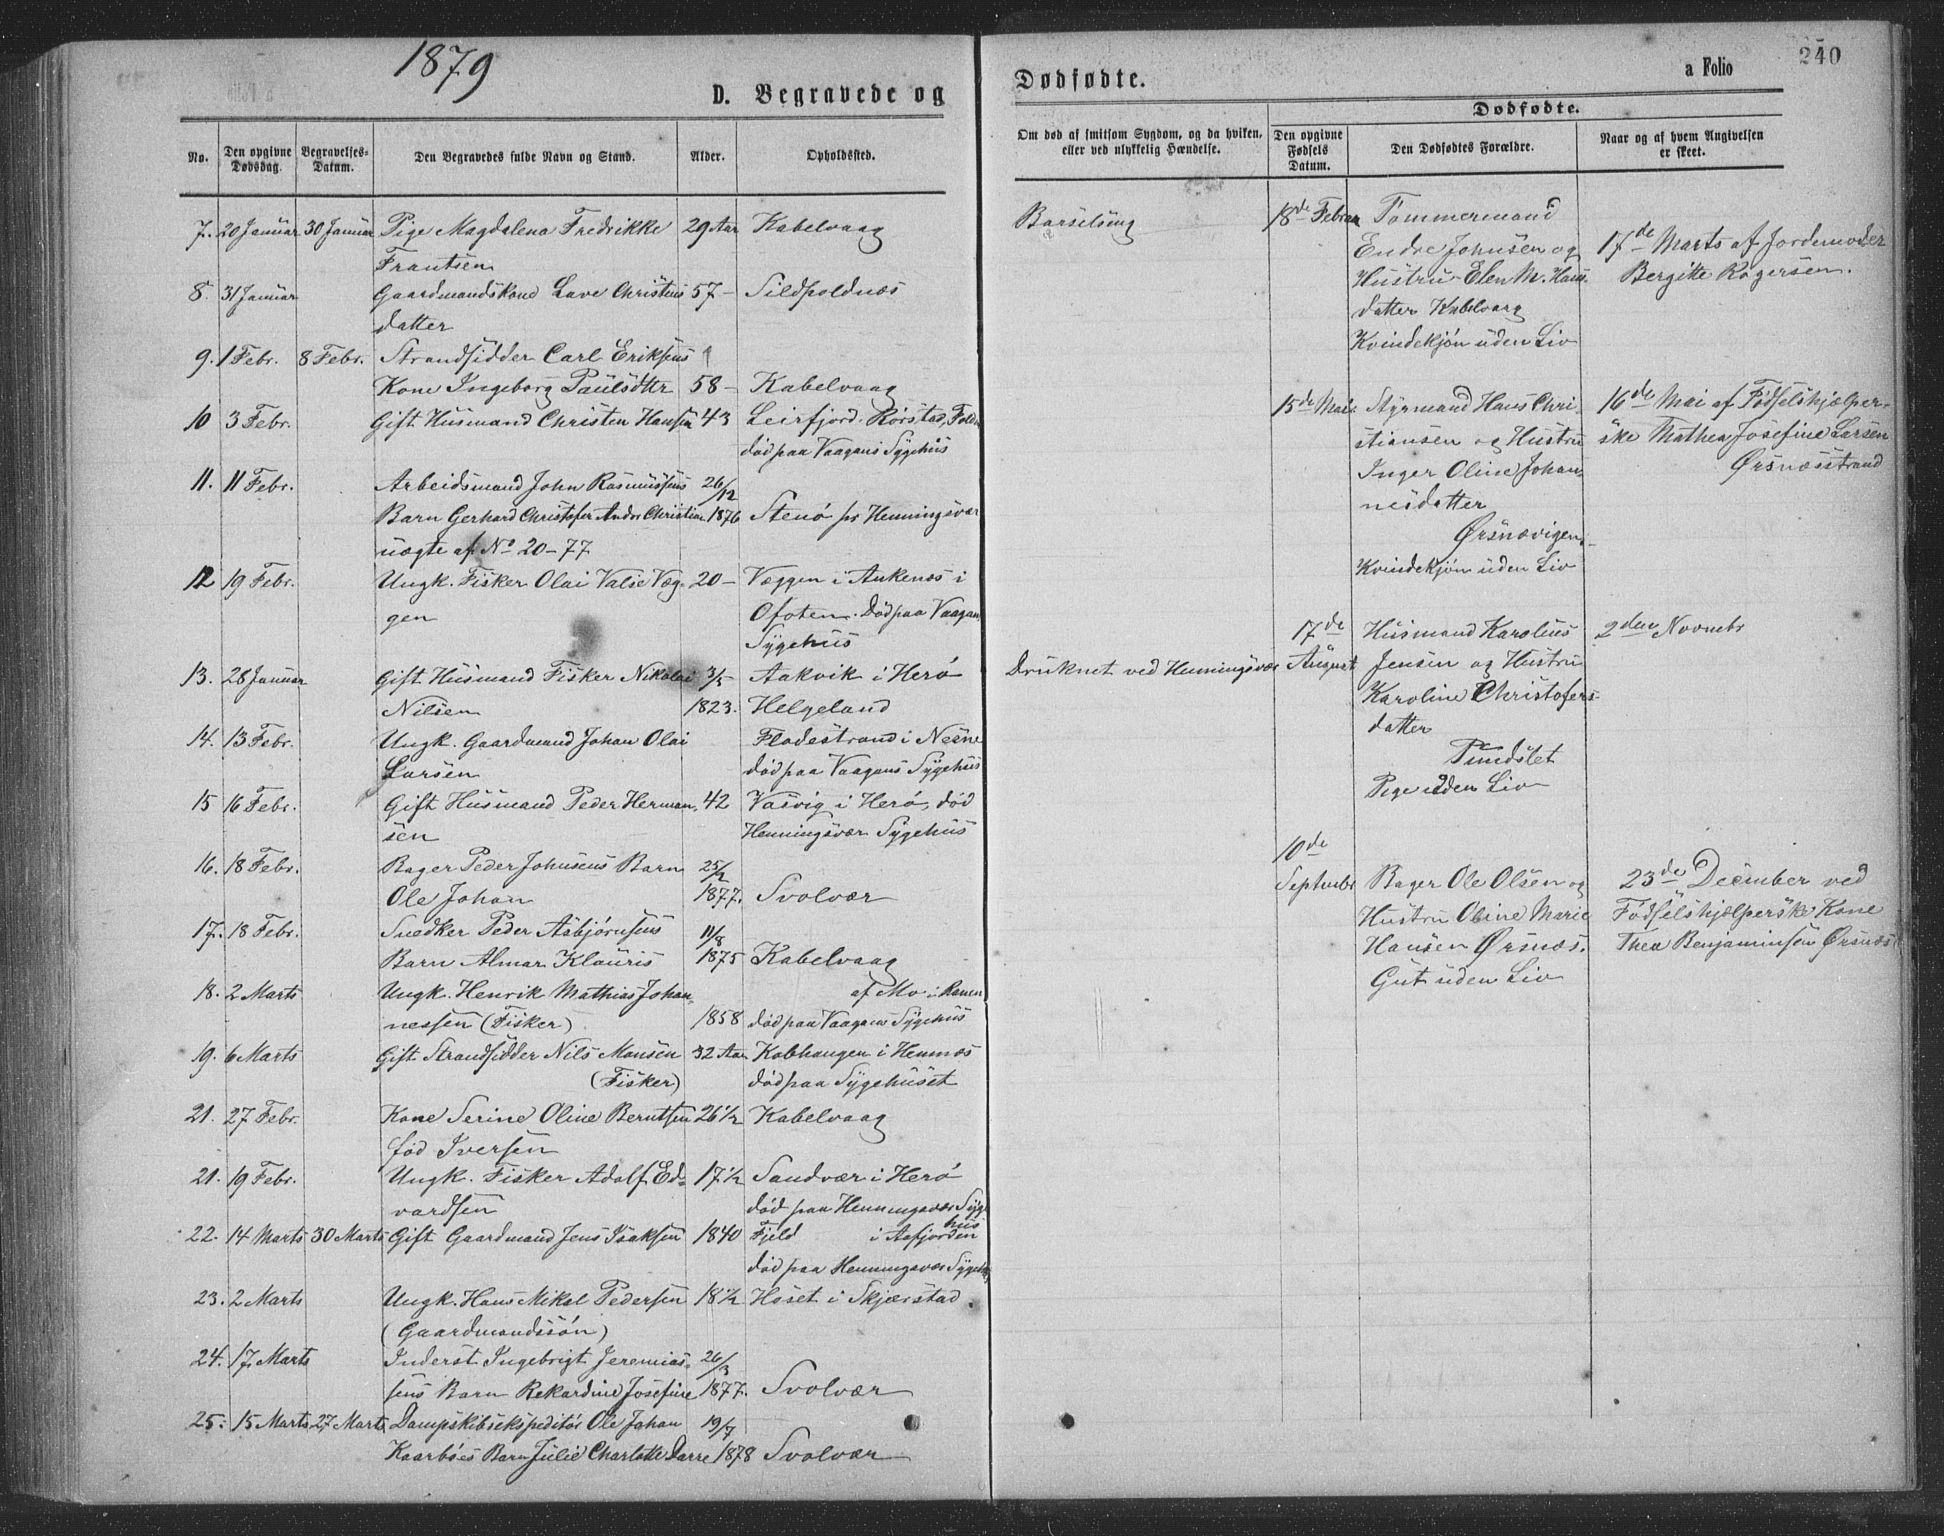 1879
D. Begravede og
No.
Den opgivne Dødsdag.
Begravelses-Datum.
Den Begravedes fulde Navn og Stand.
Alder.
Opholdssted.
7. 20 Januar 30 Januar Pige Magdalena Fredrikke 29 Aar Kabelvaag
Frantsen
8. 31 Januar Gaardmandskone Lave Christens 57 –
datter
9. 1 Febr. 8 Febr. Strandsidder Carl Eriksens
Kone Ingeborg Paulsdtr 58 – Kabelvaag
10 3 Febr. Gift Husmand Christen Hansen 43 Leirfjord. Rørstad, Folden
død paa Vaagans Sygehus
11. 11 Febr. Arbeidsmand John Rasmussens 26/12
Barn Gerhard Christofer Andor Christian 1876 Stenø pr Henningsvær
uægte af No 20-77
12 19 Febr. Ungk. Fisker Olai Valse Væg- 20 – Væggen i Ankenes i
gen Ofoten. Død paa Vaagan
Sygehus
13. 28 Januar Gift Husmand Fisker Nikolai 3/5 Aakvik i Herø
Nilsen 1823. Helgeland
14. 13 Febr. Ungk. Gaardmand Johan Olai Fladestrand i Nesne
Larsen død paa Vaagans Sygehus
15 16 Febr. Gift Husmand Peder Herman- 42 Vasvig i Herø, død
sen Henningsvær Sygehus
16. 18 Febr. Bager Peder Johnsens Barn 25/2
Ole Johan 1877. Svolvær
17. 18 Febr. Snedker Peder Asbjørnsens 11/8
Barn Almar Klauris 1875 Kabelvaag
18. 2 Marts Ungk. Henrik Mathias Johan- af Mo i Ranen
nessen (Fisker) 1858 død paa Vaagans Sygehus
19. 6 Marts Gift Strandsidder Nils Monsen 32 Aar Kobhaugen i Hemnæs
(Fisker) død paa Sygehuset
21. 27 Febr. Kone Serine Oline Berntsen 26 1/2 Kabelvaag
fød Iversen
21. 19 Febr. Ungk. Fisker Adolf Ed- 17 1/2 Sandvær i Herø
vardsen død paa Henningsvær Syge-
hus
22. 14 Marts 30 Marts Gift Gaardmand Jens Isaksen 1840 Fjeld i Aafjorden
død paa Henningsvær Sygehus
23. 2 Marts Ungk. Hans Mikal Pedersen 18 1/2 Høset i Skjærstad.
(Gaardmandssøn)
24. 17 Marts Inderst Ingebrigt Jeremias- 26/3
sens Barn Rekardine Josefine 1877. Svolvær
25. 15 Marts 27 Marts Dampskibsekspeditør Ole Johan 19/7
Kaarbøes Barn Julie Charlotte Darre 1878 Svolvær
Dødfødte.
a Folio
240
Om død af smitsom Sygdom, og da hvilken,
eller ved ulykkelig Hændelse.
Dødfødte.
Den opgivne Fødsels Datum.
Den Dødfødtes Forældre.
Naar og af hvem Angivelsen
er skeet.
Barselseng 18de Februar Tømmermand
Endre Johnsen og 17de Marts af Jordemoder
Hustru Elen M. Hans- Bergitte Rogersen.
datter Kabelvaag
Kvindekjøn uden Liv
15de Mai Styrmand Hans Chri- 16de Mai af Fødselshjælper-
stiansen og Hustru ske Mathea Josefine Larsen
Inger Oline Johan- Ørsnæsstrand
nesdatter
Ørsnævigen
Kvindekjøn uden Liv
17de Husmand Karolius 2den Novnebr
Druknet ved Henningsvær August Jensen og Hustru
Karoline Christofers-
datter
Pige uden Liv
10de
Septembr Bager Ole Olsen og 23de December ved
Hustru Oline Marie Fødselshjælperske Kone
Hansen Ørsnæs. Thea Benjaminsen Ørsnæs
Gut uden Liv